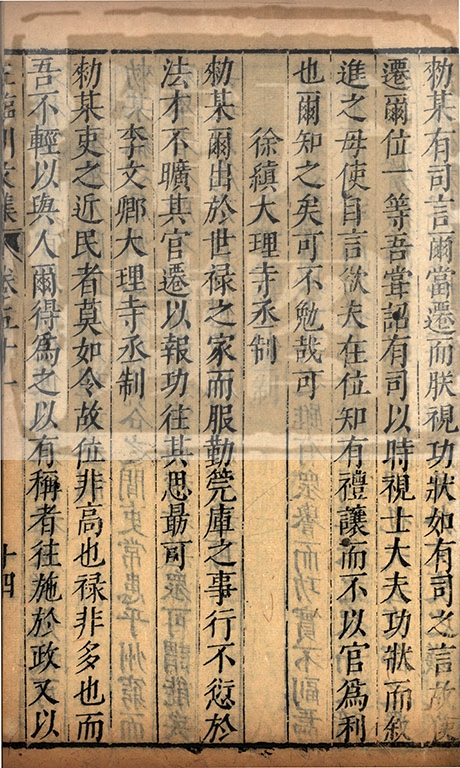 勑某有司言爾當遷而朕視功狀如有司之言故
遷爾位一等吾甞詔有司以時視士大夫功狀而敘
進之毋使自言欲夫在位知有禮讓而不以官爲利
也爾知之矣可不勉哉可
徐縝大理寺丞制
勑某爾出於世禄之家而服勤筦庫之事行不愆於
法才不曠其官遷以報功往其思最可
李文卿大理寺丞制
勑某吏之近民者莫如令故位非高也禄非多也而
吾不輕以與人爾得爲之以有稱者往施於政又以
臨川文集 卷五十一 十四